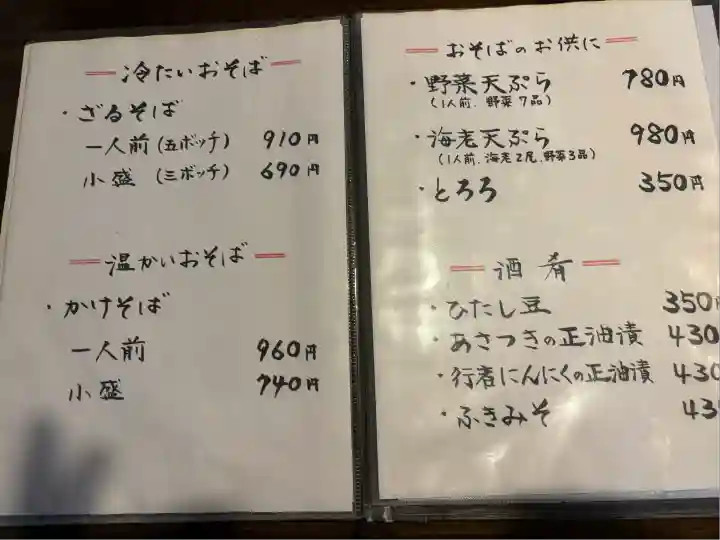 冷たいおそば
・ざるそば
一人前(五ボッチ) 910円
小盛 (三ボッチ) 690円
温かいおそば
・かけそば
一人前 960円
小盛 740円
おそばのお供に
・野菜天ぷら 780円
(1人前、野菜7品)
・海老天ぷら 980円
(1人前、海老2尾、野菜3品)
・とろろ 350円
酒肴
・ひたし豆 350円
・あさつきの正油漬 430
・行者にんにくの正油漬 430
・ふきみそ 43